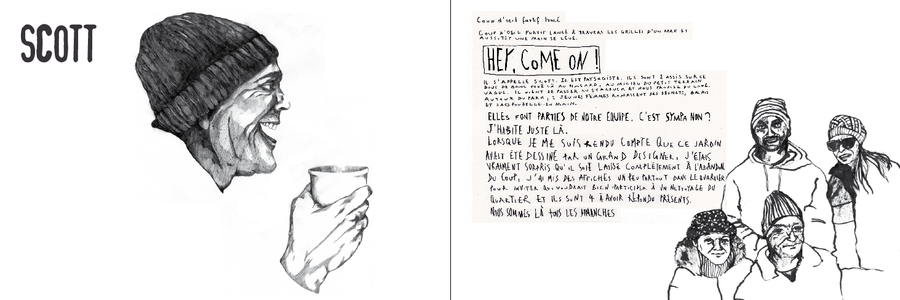 SCOTT
Coup d'oeil furtif lancé
COUP D'OEIL FURTIF LANCÉ À TRAVERS LES GRILLES D'UN PARK ET
AUSSITÔT UNE MAIN SE LÈVE.
HEY, COME ON !
IL S'APPELLE SCOTT. IL EST PAYSAGISTE. ILS SONT 2 ASSIS SUR CE
AU MILIEU DU PETIT TERRAIN
AUTOUR DU PARK, 2 JEUNES FEMMES RAMASSENT DES DÉCHETS, BALAI
ET EN MAIN.
ELLES FONT PARTIES DE NOTRE ÉQUIPE. C'EST SYMPA NON ?
J'HABITE JUSTE LÀ.
LORSQUE JE ME SUIS RENDU COMPTE QUE CE JARDIN
AVAIT ÉTÉ DESSINÉ PAR UN GRAND DESIGNER, J'ÉTAIS
VRAIMENT SURPRIS QU'IL SOIT LAISSÉ COMPLÈTEMENT À L'ABANDON
DU COUP, J'AI MIS DES AFFICHES UN PEU PARTOUT DANS LE QUARTIER
POUR INVITER QUI VOUDRAIT BIEN PARTICIPER À UN NETTOYAGE DU
QUARTIER ET ILS SONT 4 À AVOIR RÉPONDU PRÉSENTS.
NOUS SOMMES LÀ TOUS LES DIMANCHES